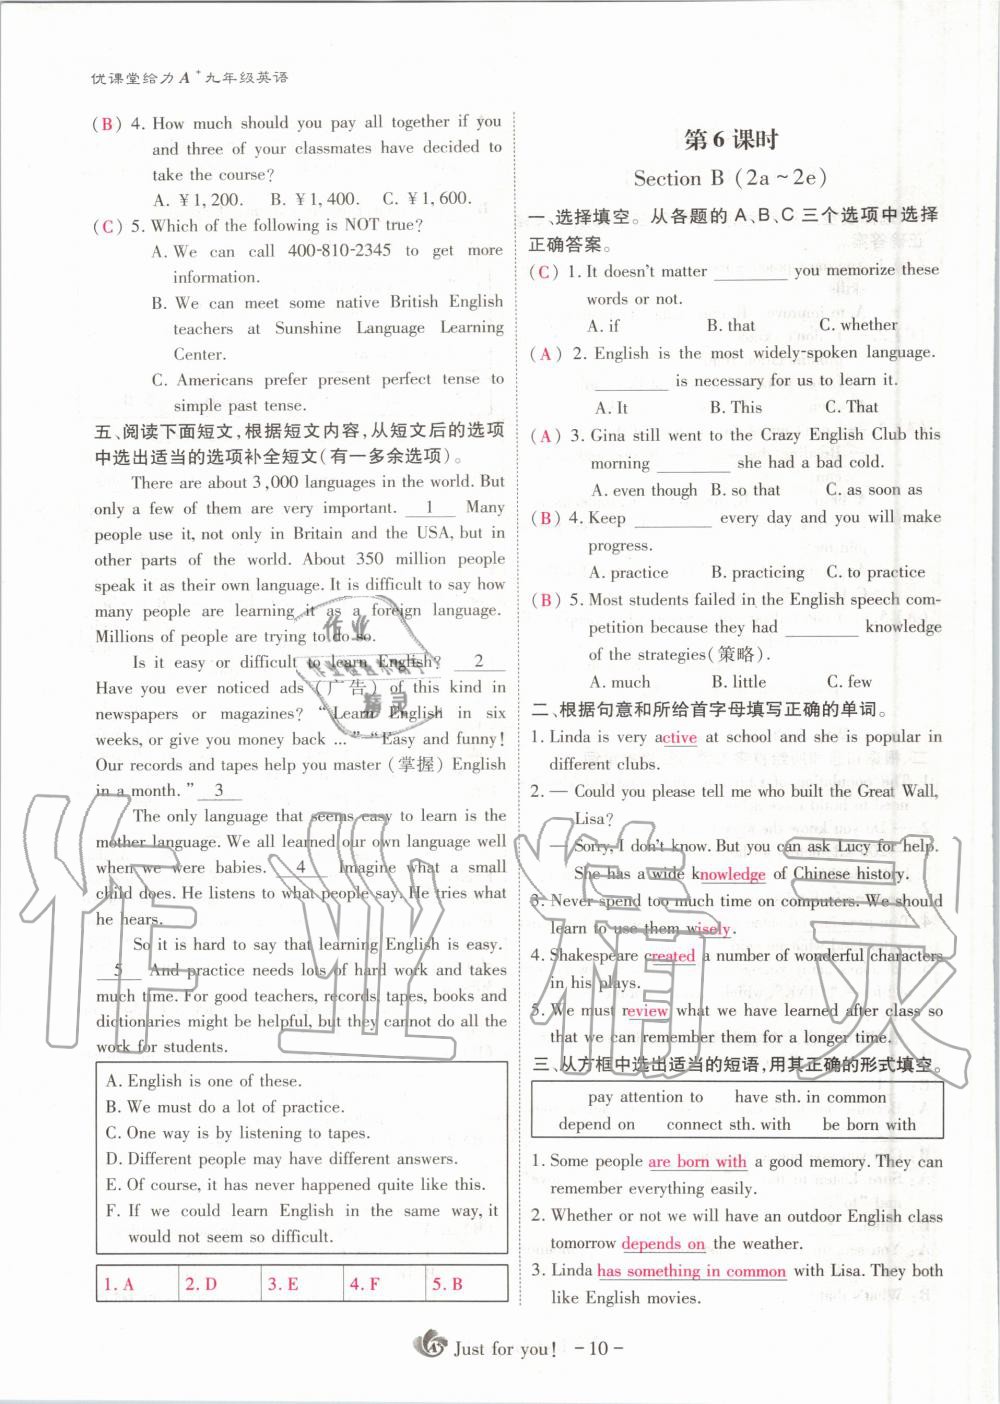 优课堂给力A+九年级英语
(B) 4. How much should you pay all together if you
and three of your classmates have decided to
take the course?
A. ￥1,200. B. ￥1,400. C. ￥1,600.
(C) 5. Which of the following is NOT true?
A. We can call 400-810-2345 to get more
information.
B. We can meet some native British English
teachers at Sunshine Language Learning
Center.
C. Americans prefer present perfect tense to
simple past tense.
五、阅读下面短文,根据短文内容,从短文后的选项
中选出适当的选项补全短文(有一多余选项)。
There are about 3,000 languages in the world. But
only a few of them are very important. 1 Many
people use it, not only in Britain and the USA, but in
other parts of the world. About 350 million people
speak it as their own language. It is difficult to say how
many people are learning it as a foreign language.
Millions of people are trying to do so.
Is it easy or difficult to learn English? 2
Have you ever noticed ads (广告) of this kind in
newspapers or magazines? “Learn English in six
weeks, or give you money back ...” “Easy and funny!
Our records and tapes help you master (掌握) English
in a month.” 3
The only language that seems easy to learn is the
mother language. We all learned our own language well
when we were babies. 4 Imagine what a small
child does. He listens to what people say. He tries what
he hears.
So it is hard to say that learning English is easy.
5 And practice needs lots of hard work and takes
much time. For good teachers, records, tapes, books and
dictionaries might be helpful, but they cannot do all the
work for students.
A. English is one of these.
B. We must do a lot of practice.
C. One way is by listening to tapes.
D. Different people may have different answers.
E. Of course, it has never happened quite like this.
F. If we could learn English in the same way, it
would not seem so difficult.
1. A 2. D 3. E 4. F 5. B
第6课时
Section B (2a~2e)
一、选择填空。从各题的A、B、C三个选项中选择
正确答案。
(C) 1. It doesn't matter ________ you memorize these
words or not.
A. if B. that C. whether
(A) 2. English is the most widely-spoken language.
________ is necessary for us to learn it.
A. It B. This C. That
(A) 3. Gina still went to the Crazy English Club this
morning ________ she had a bad cold.
A. even though B. so that C. as soon as
(B) 4. Keep ________ every day and you will make
progress.
A. practice B. practicing C. to practice
(B) 5. Most students failed in the English speech com-
petition because they had ________ knowledge
of the strategies(策略).
A. much B. little C. few
二、根据句意和所给首字母填写正确的单词。
1. Linda is very active at school and she is popular in
different clubs.
2. — Could you please tell me who built the Great Wall,
Lisa?
— Sorry, I don't know. But you can ask Lucy for help.
She has a wide knowledge of Chinese history.
3. Never spend too much time on computers. We should
learn to use them wisely.
4. Shakespeare created a number of wonderful characters
in his plays.
5. We must review what we have learned after class so
that we can remember them for a longer time.
三、从方框中选出适当的短语,用其正确的形式填空。
pay attention to have sth. in common
depend on connect sth. with be born with
1. Some people are born with a good memory. They can
remember everything easily.
2. Whether or not we will have an outdoor English class
tomorrow depends on the weather.
3. Linda has something in common with Lisa. They both
like English movies.
Just for you! -10-
作业精灵